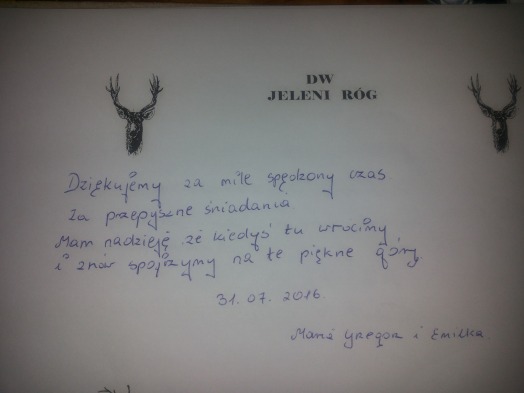 DW
JELENI RÓG
Dziękujemy za mile spędzony czas
Za przepyszne śniadania
Mam nadzieję że kiedyś tu wrocimy
i znów spojrzymy na te piękne góry
31.07.2016
Gregor i Emilka